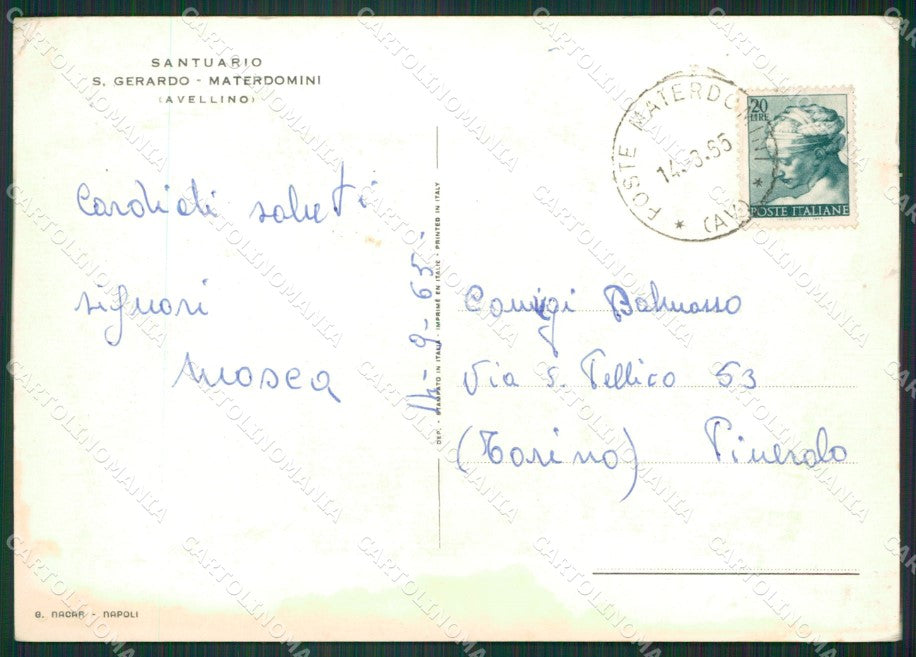 SANTUARIO
S. GERARDO - MATERDOMINI
(AVELLINO)
Cordiali saluti
signori
Mosca
14-9-65
DEP. - STAMPATO IN ITALIA - IMPRIMÉ EN ITALIE - PRINTED IN ITALY
POSTE MATERDOMINI
(AV)
20
LIRE
POSTE ITALIANE
Coniugi
Via S. Pellico 53
(Torino) Pinerolo
G. NACAR - NAPOLI
CARTOLINOMANIA